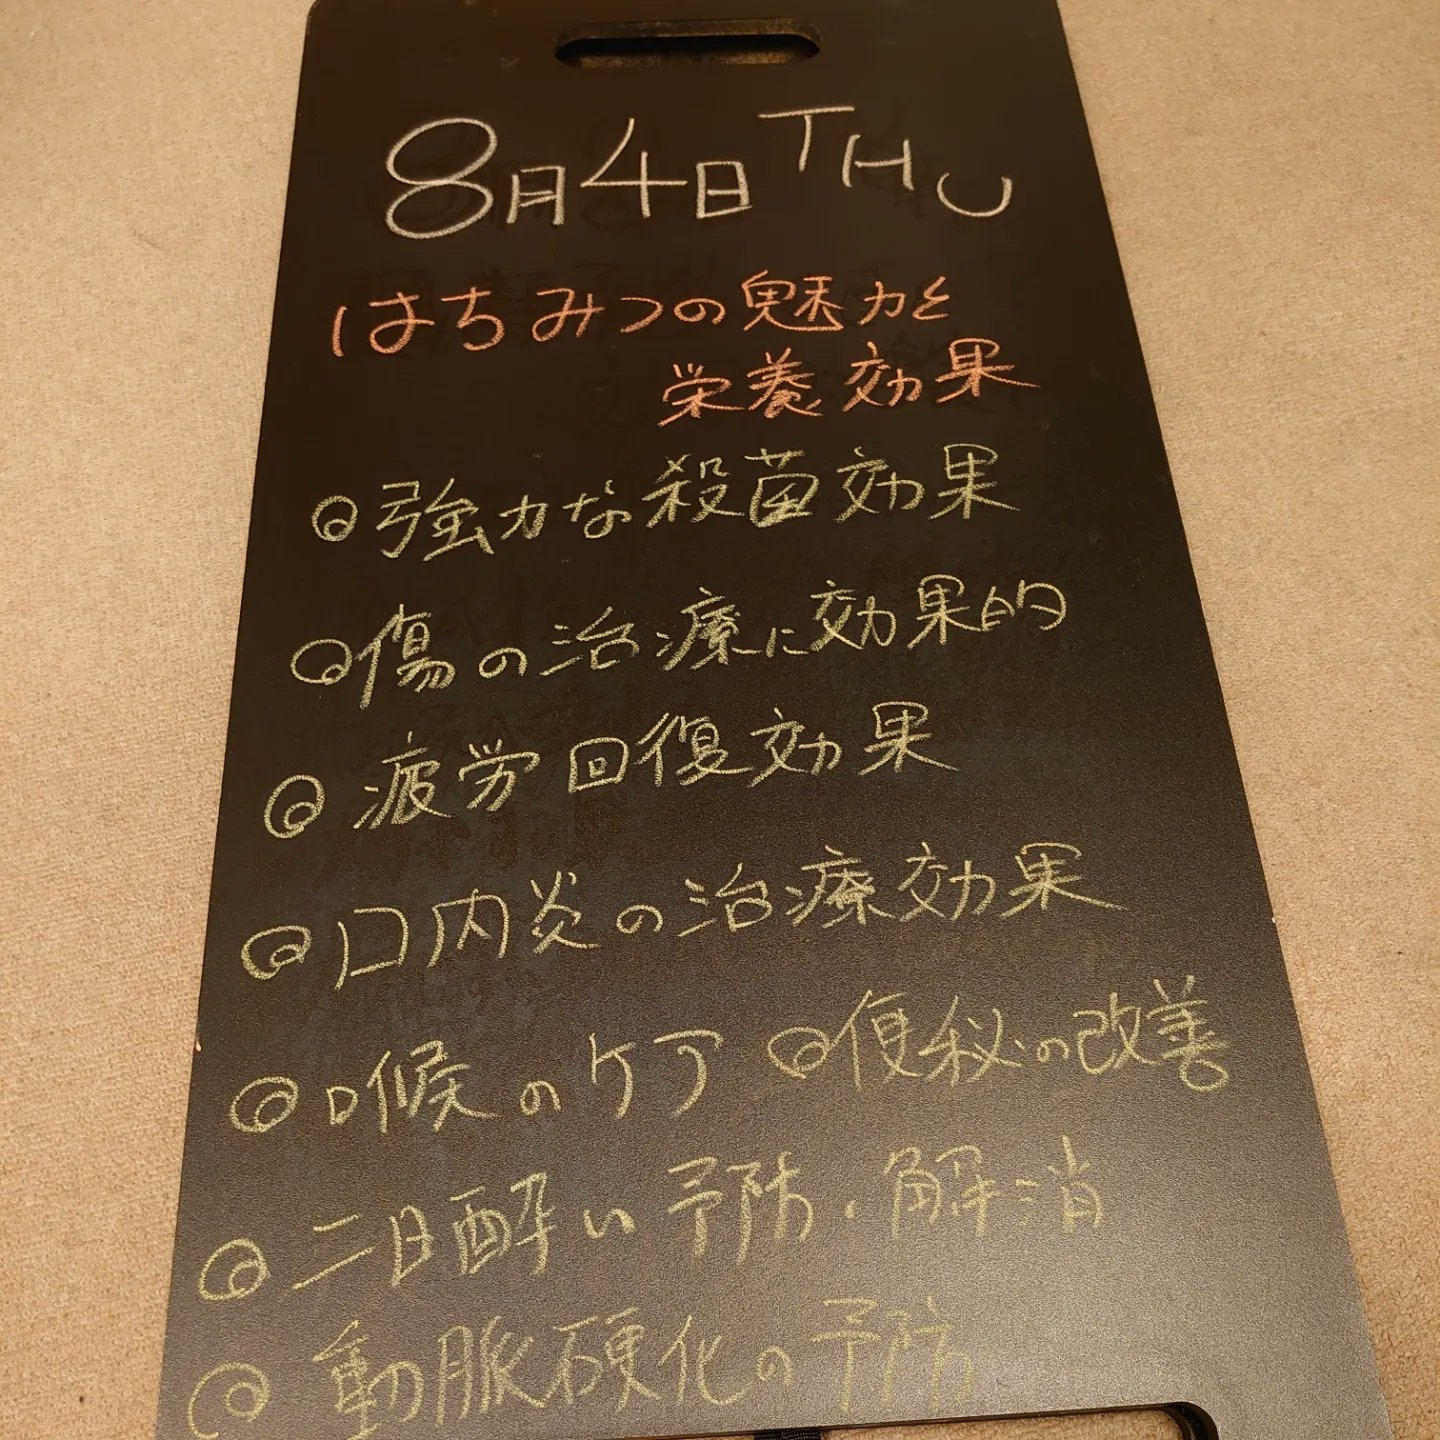 8月4日 THU
はちみつの魅力と
栄養効果
◎強力な殺菌効果
◎傷の治療に効果的
◎疲労回復効果
◎口内炎の治療効果
◎喉のケア ◎便秘の改善
◎二日酔い予防・解消
◎動脈硬化の予防